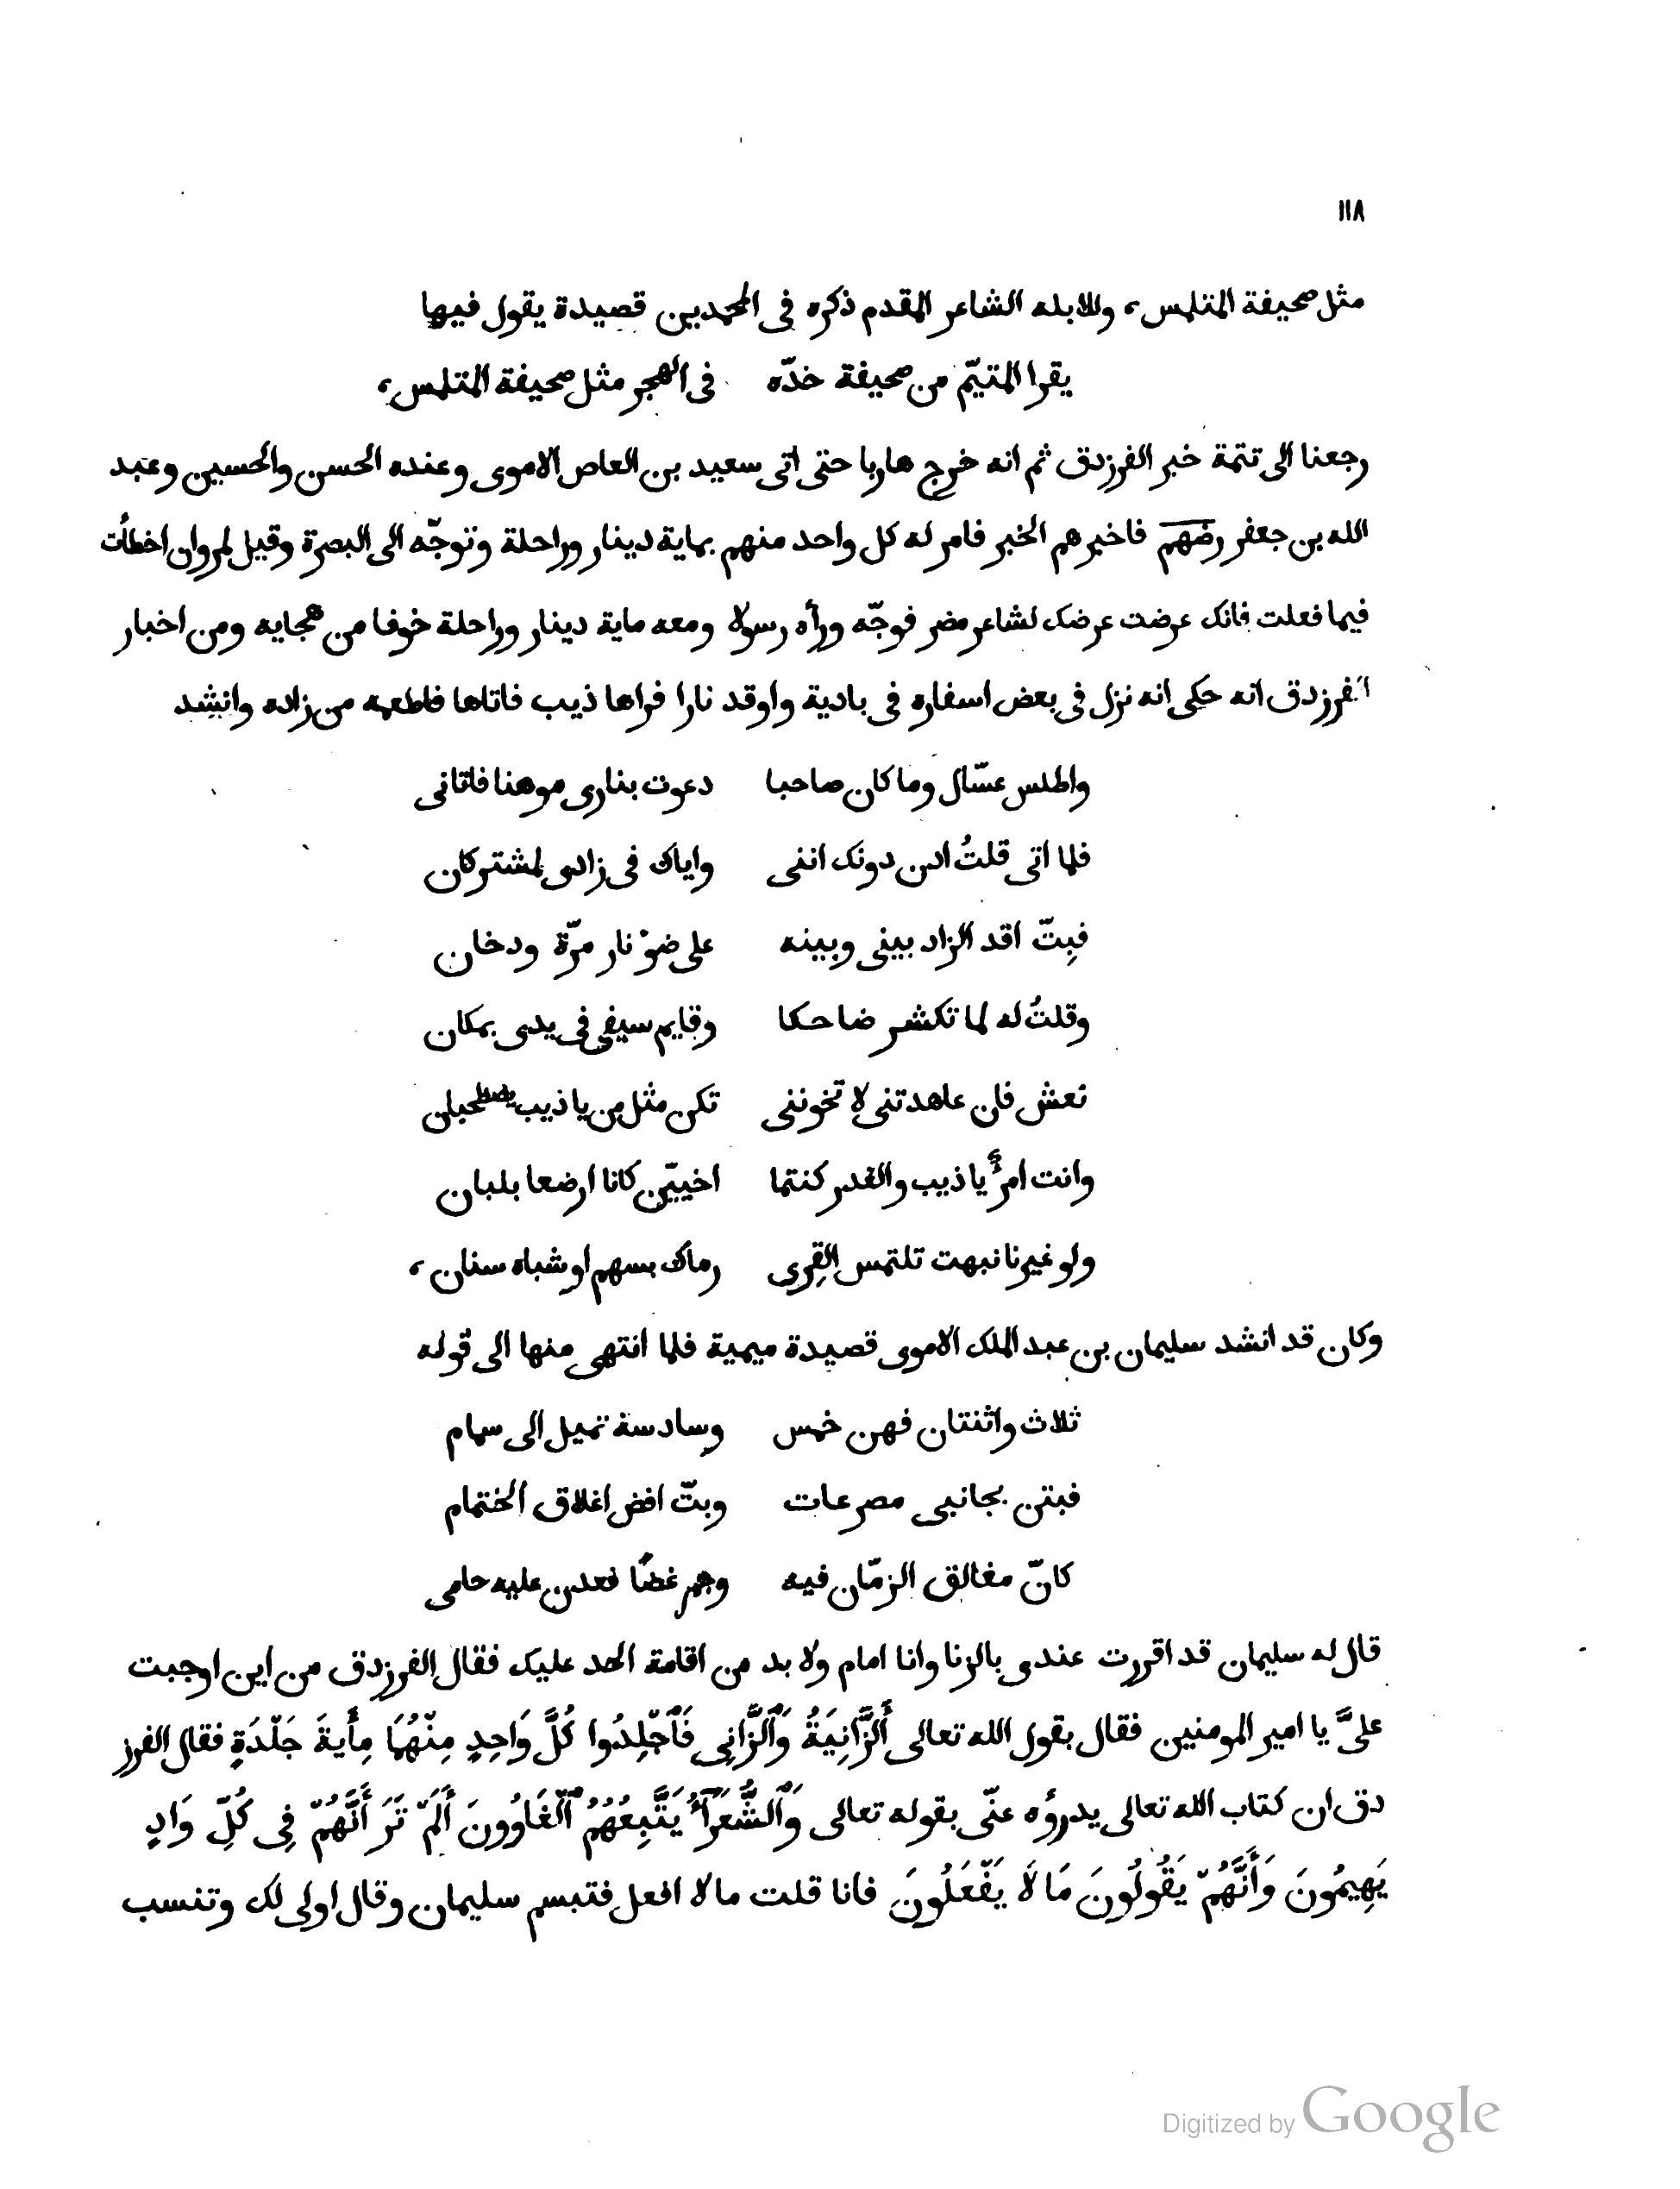 ١١٨
مثل صحيفة المتلمس، وللابله الشاعر المقدم ذكره فى المحمدين قصيدة يقول فيها
يقرا المتيّم من صحيفة خدّه فى الهجر مثل صحيفة المتلمس،
رجعنا الى تتمة خبر الفرزدق ثم انه خرج هاربا حتى اتى سعيد بن العاص الاموى وعنده الحسن والحسين وعبد
الله بن جعفر رضهم فاخبرهم الخبر فامر له كل واحد منهم بماية دينار وراحلة وتوجّه الى البصرة وقيل لمروان اخطأت
فيما فعلت فانك عرضت عرضك لشاعر مضر فوجّه ورأه رسولا ومعه ماية دينار وراحلة خوفا من هجايه ومن اخبار
الفرزدق انه حكى انه نزل فى بعض اسفاره فى بادية واوقد نارا فراها ذيب فاتاها فاطعمه من زاده وانشد
واطلس عسّال وما كان صاحبا دعوت بنارى موهنا فاتانى
فلما اتى قلتُ ادن دونك اننى واياك فى زادى لمشتركان
فبِتّ اقد الزاد بينى وبينه على ضوْ نار مرّة ودخان
وقلتُ له لما تكشر ضاحكا وقايم سيفى فى يدى بمكان
تعش فان عاهدتنى لا تخوننى تكن مثل من يا ذيب يصطحبان
وانت امرُؤ يا ذيب والغدر كنتما اخييّن كانا ارضعا بلبان
ولو غيرنا نبهت تلتمس القِرى رماك بسهم او شباه سنان،
وكان قد انشد سليمان بن عبد الملك الاموى قصيدة ميمية فلما انتهى منها الى قوله
ثلاث واثنتان فهن خمس وسادسة تميل الى سهام
فبتن بجانبى مصرعات وبتّ افض اغلاق الختمام
كانّ مغالق الزمّان فيه وجمر غضًا قعدن عليه حامى
قال له سليمان قد اقررت عندى بالزنا وانا امام ولا بد من اقامة الحد عليك فقال الفرزدق من اين اوجبت
علىَّ يا امير المومنين فقال بقول الله تعالى أَلزَّانِيَةُ وَٱلزَّانِى فَٱجْلِدُوا كُلَّ وَاحِدٍ مِنْهُمَا مِأَيةَ جَلْدَةٍ فقال الفرز
دق ان كتاب الله تعالى يدرؤه عنّى بقوله تعالى وَٱلشُّعَرَآءُ يَتَّبِعُهُمُ ٱلْغَاوُونَ أَلَمْ تَرَ أَنَّهُمْ فِى كُلِّ وَادٍ
يَهِيمُونَ وَأَنَّهُمْ يَقُولُونَ مَا لَا يَفْعَلُونَ فانا قلت ما لا افعل فتبسم سليمان وقال اولى لك وتنسب
Digitized by Google